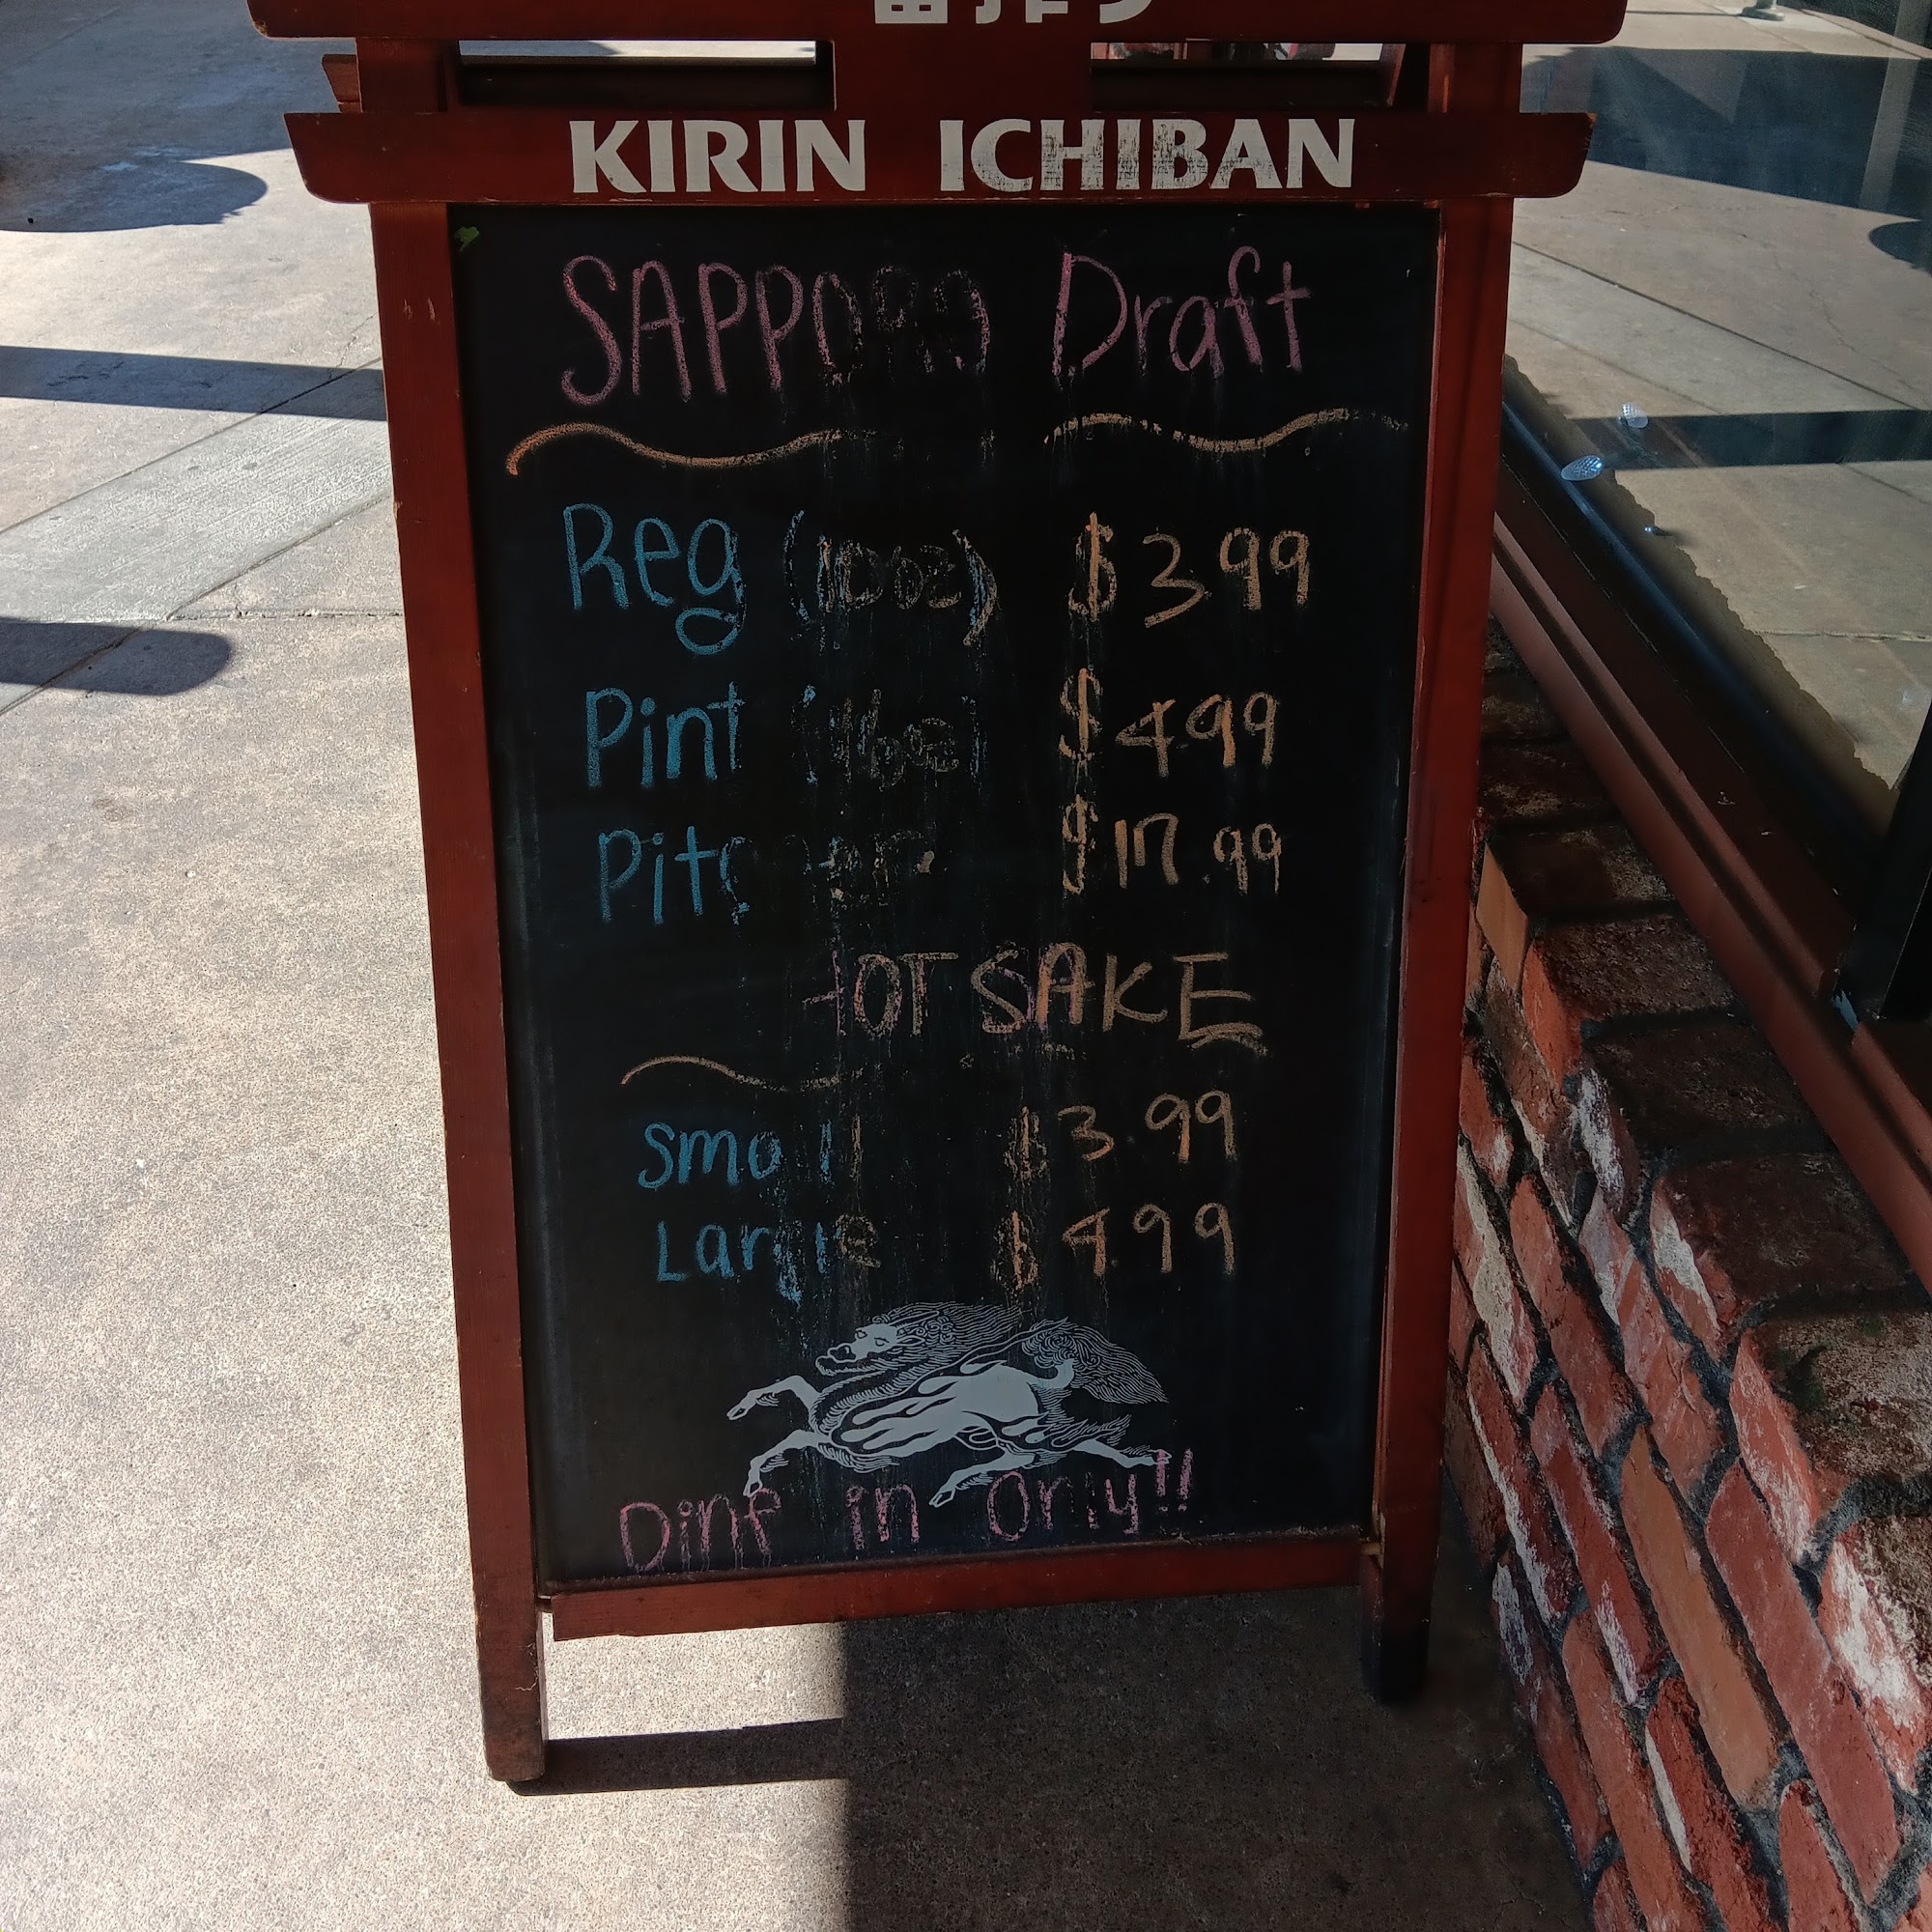 KIRIN ICHIBAN
SAPPORO Draft
Reg (10oz) $3.99
Pint (16oz) $4.99
Pitcher $17.99
HOT SAKE
Small $3.99
Large $4.99
Dine in Only!!